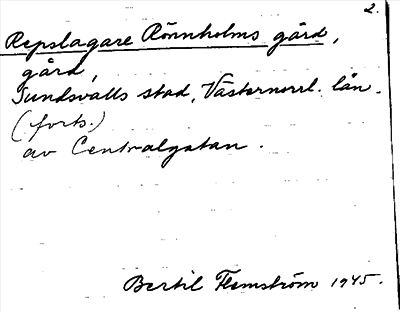 2.
Repslagare Rönnholms gård,
gård,
Sundsvalls stad, Västernorrl. län.
(forts.)
av Centralgatan.
Bertil Flemström 1945.